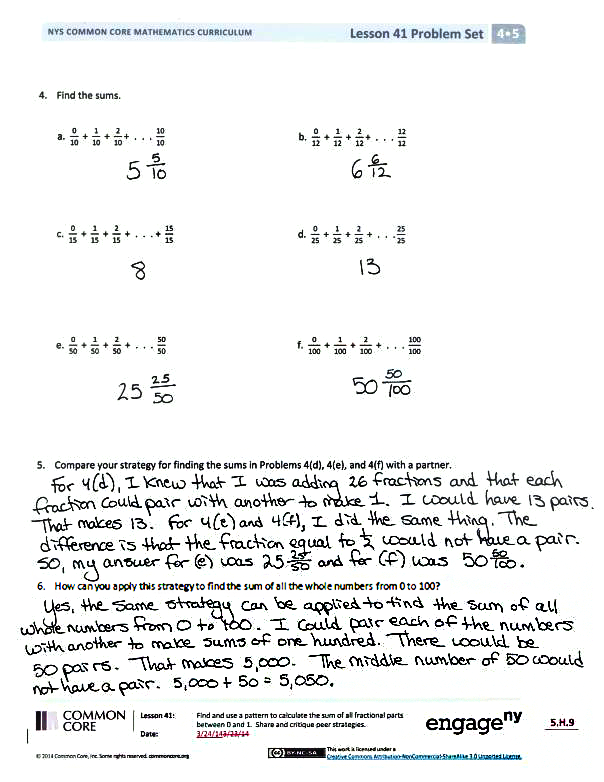 NYS COMMON CORE MATHEMATICS CURRICULUM Lesson 41 Problem Set 4•5
4. Find the sums.
a. 0/10 + 1/10 + 2/10 + . . . 10/10 b. 0/12 + 1/12 + 2/12 + . . . 12/12
5 5/10 6 6/12
c. 0/15 + 1/15 + 2/15 + . . . + 15/15 d. 0/25 + 1/25 + 2/25 + . . . 25/25
8 13
e. 0/50 + 1/50 + 2/50 + . . . 50/50 f. 0/100 + 1/100 + 2/100 + . . . 100/100
25 25/50 50 50/100
5. Compare your strategy for finding the sums in Problems 4(d), 4(e), and 4(f) with a partner.
For 4(d), I knew that I was adding 26 fractions and that each
fraction could pair with another to make 1. I would have 13 pairs.
That makes 13. For 4(e) and 4(f), I did the same thing. The
difference is that the fraction equal to 1/2 would not have a pair.
So, my answer for (e) was 25 25/50 and for (f) was 50 50/100.
6. How can you apply this strategy to find the sum of all the whole numbers from 0 to 100?
Yes, the same strategy can be applied to find the sum of all
whole numbers from 0 to 100. I could pair each of the numbers
with another to make sums of one hundred. There would be
50 pairs. That makes 5,000. The middle number of 50 would
not have a pair. 5,000 + 50 = 5,050.
COMMON CORE Lesson 41: Find and use a pattern to calculate the sum of all fractional parts
between 0 and 1. Share and critique peer strategies.
Date: 3/24/143/23/14
engage ny 5.H.9
© 2014 Common Core, Inc. Some rights reserved. commoncore.org
(cc) BY-NC-SA This work is licensed under a
Creative Commons Attribution-NonCommercial-ShareAlike 3.0 Unported License.